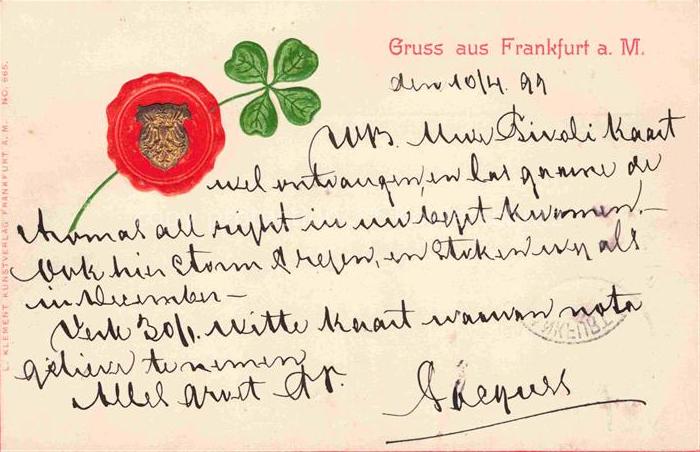 Gruss aus Frankfurt a. M.
den 10/4 99
WB. Uwe Tivoli Kaart
wel ontvangen, en las gaarne de
Aromas all right in uw bezit kwamen.—
Ook hier Storm & regen, en stoken wij als
in December—
Verk 30/1. witte Kaart waarvan nota
gelieve te nemen
Alles groet
Jacques
L. KLEMENT KUNSTVERLAG FRANKFURT A. M. NO. 665.